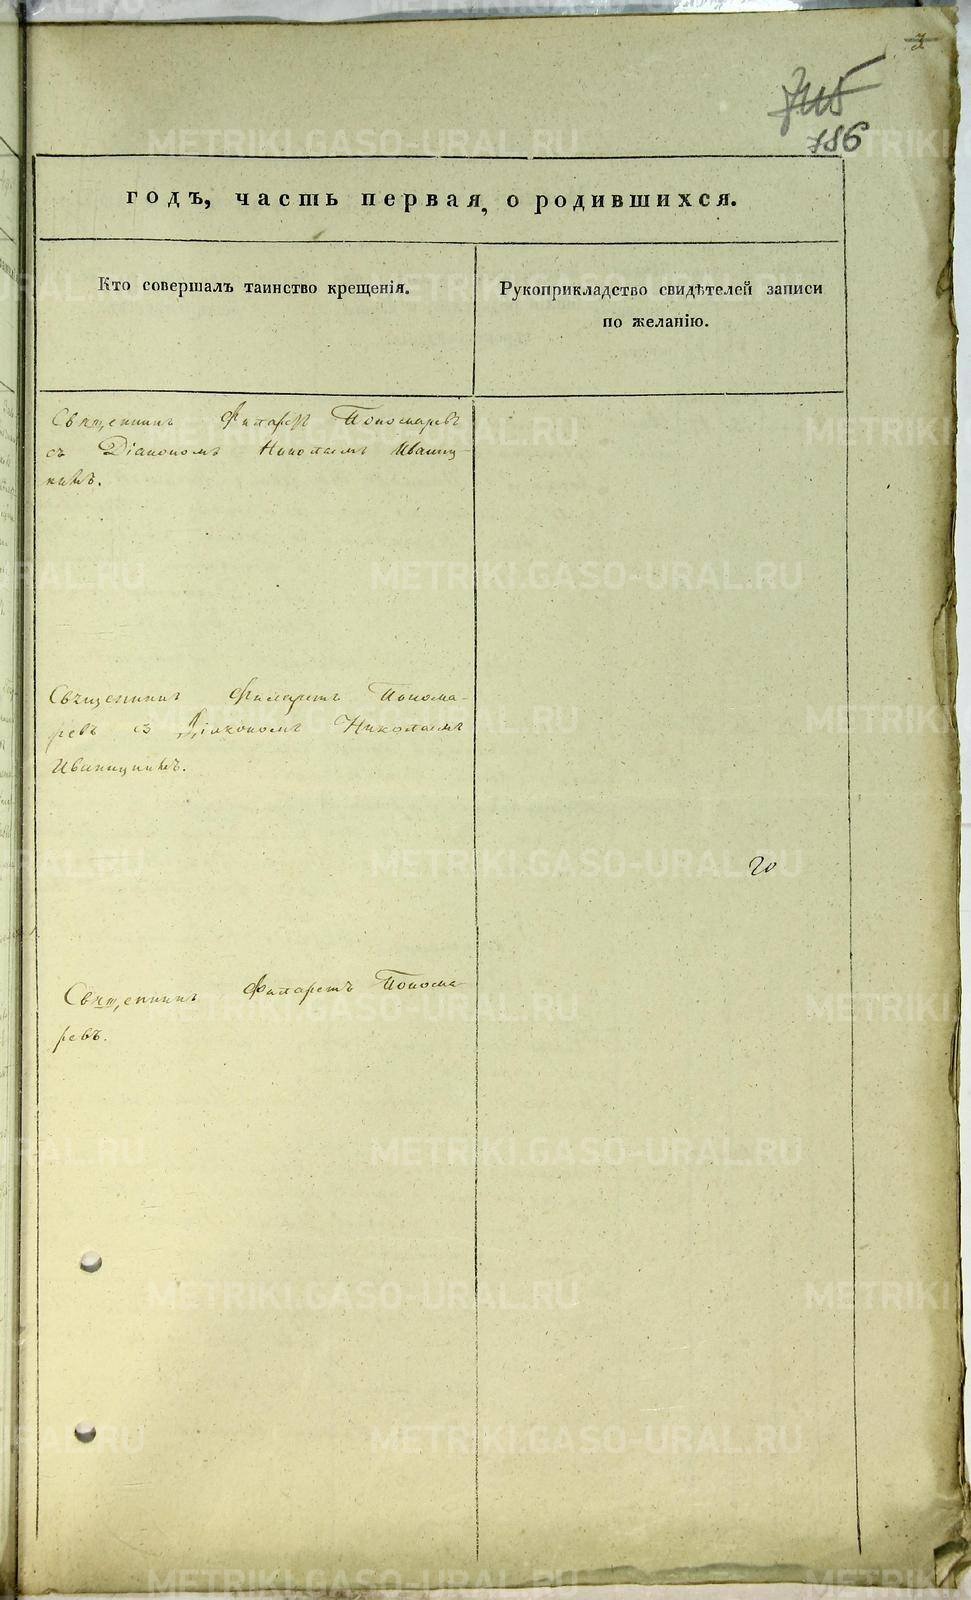 3
186
годъ, часть первая, о родившихся.
Кто совершалъ таинство крещенія.
Рукоприкладство свидѣтелей записи
по желанію.
Священникъ Филаретъ Пономаревъ
съ Діакономъ Николаемъ Иваниц-
кимъ.
Священникъ Филаретъ Понома-
ревъ съ Діакономъ Николаемъ
Иваницкимъ.
20
Священникъ Филаретъ Понома-
ревъ.
METRIKI.GASO-URAL.RU